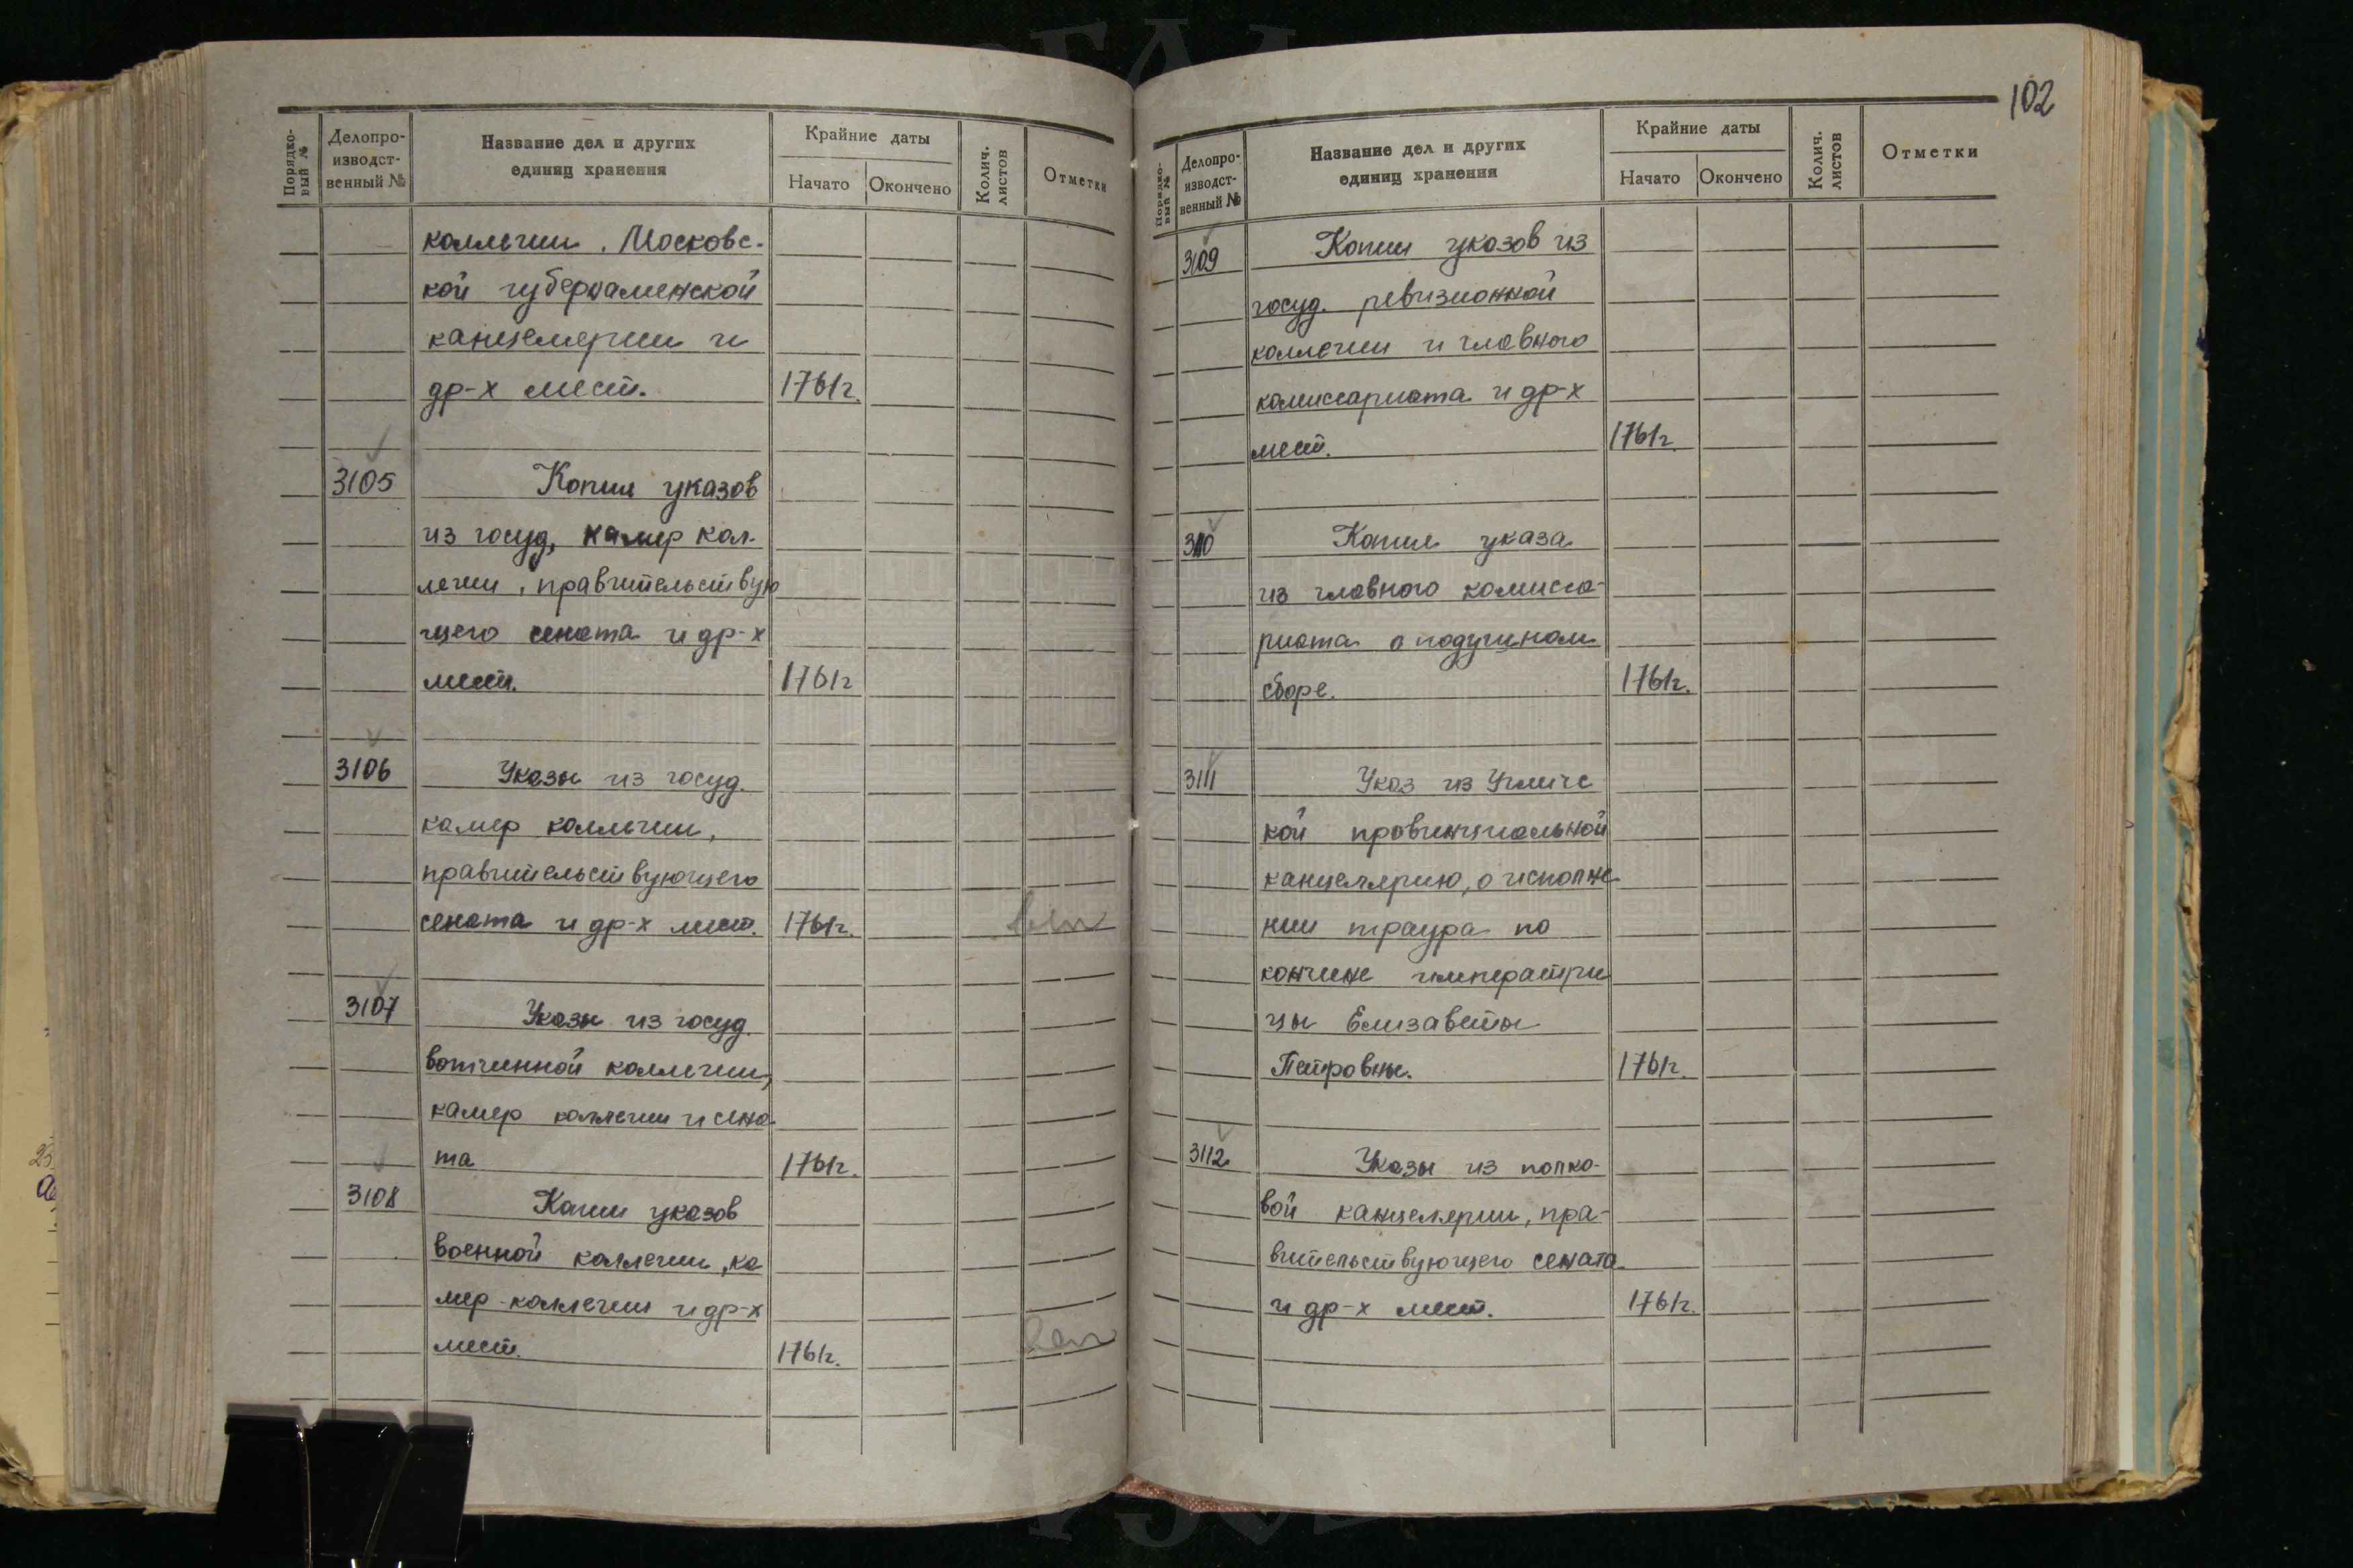 102
Порядко-
вый №
Делопро-
изводст-
венный №
Название дел и других
единиц хранения
Крайние даты
Начато
Окончено
Колич.
листов
Отметки
коллегии, Московс-
кой губернаменской
канцелярии и
др-х мест. 1761г.
3105 Копии указов
из госуд, камер кол-
легии, правительствую
щего сената и др-х
мест. 1761г
3106 Указы из госуд.
камер коллегии,
правительствующего
сената и др-х мест. 1761г.
3107 Указы из госуд.
вотчинной коллегии,
камер коллегии и сена
та 1761г.
3108 Копии указов
военной коллегии, ка
мер-коллегии и др-х
мест. 1761г.
Порядко-
вый №
Делопро-
изводст-
венный №
Название дел и других
единиц хранения
Крайние даты
Начато
Окончено
Колич.
листов
Отметки
3109 Копии указов из
госуд. ревизионной
коллегии и главного
комиссариата и др-х
мест. 1761г.
3110 Копия указа
из главного комисса-
риата о подушном
сборе. 1761г.
3111 Указ из Угличс
кой провинциальной
канцелярию, о исполне
нии траура по
кончине императри
цы Елизаветы
Петровны. 1761г.
3112 Указы из полко-
вой канцелярии, пра-
вительствующего сената
и др-х мест. 1761г.